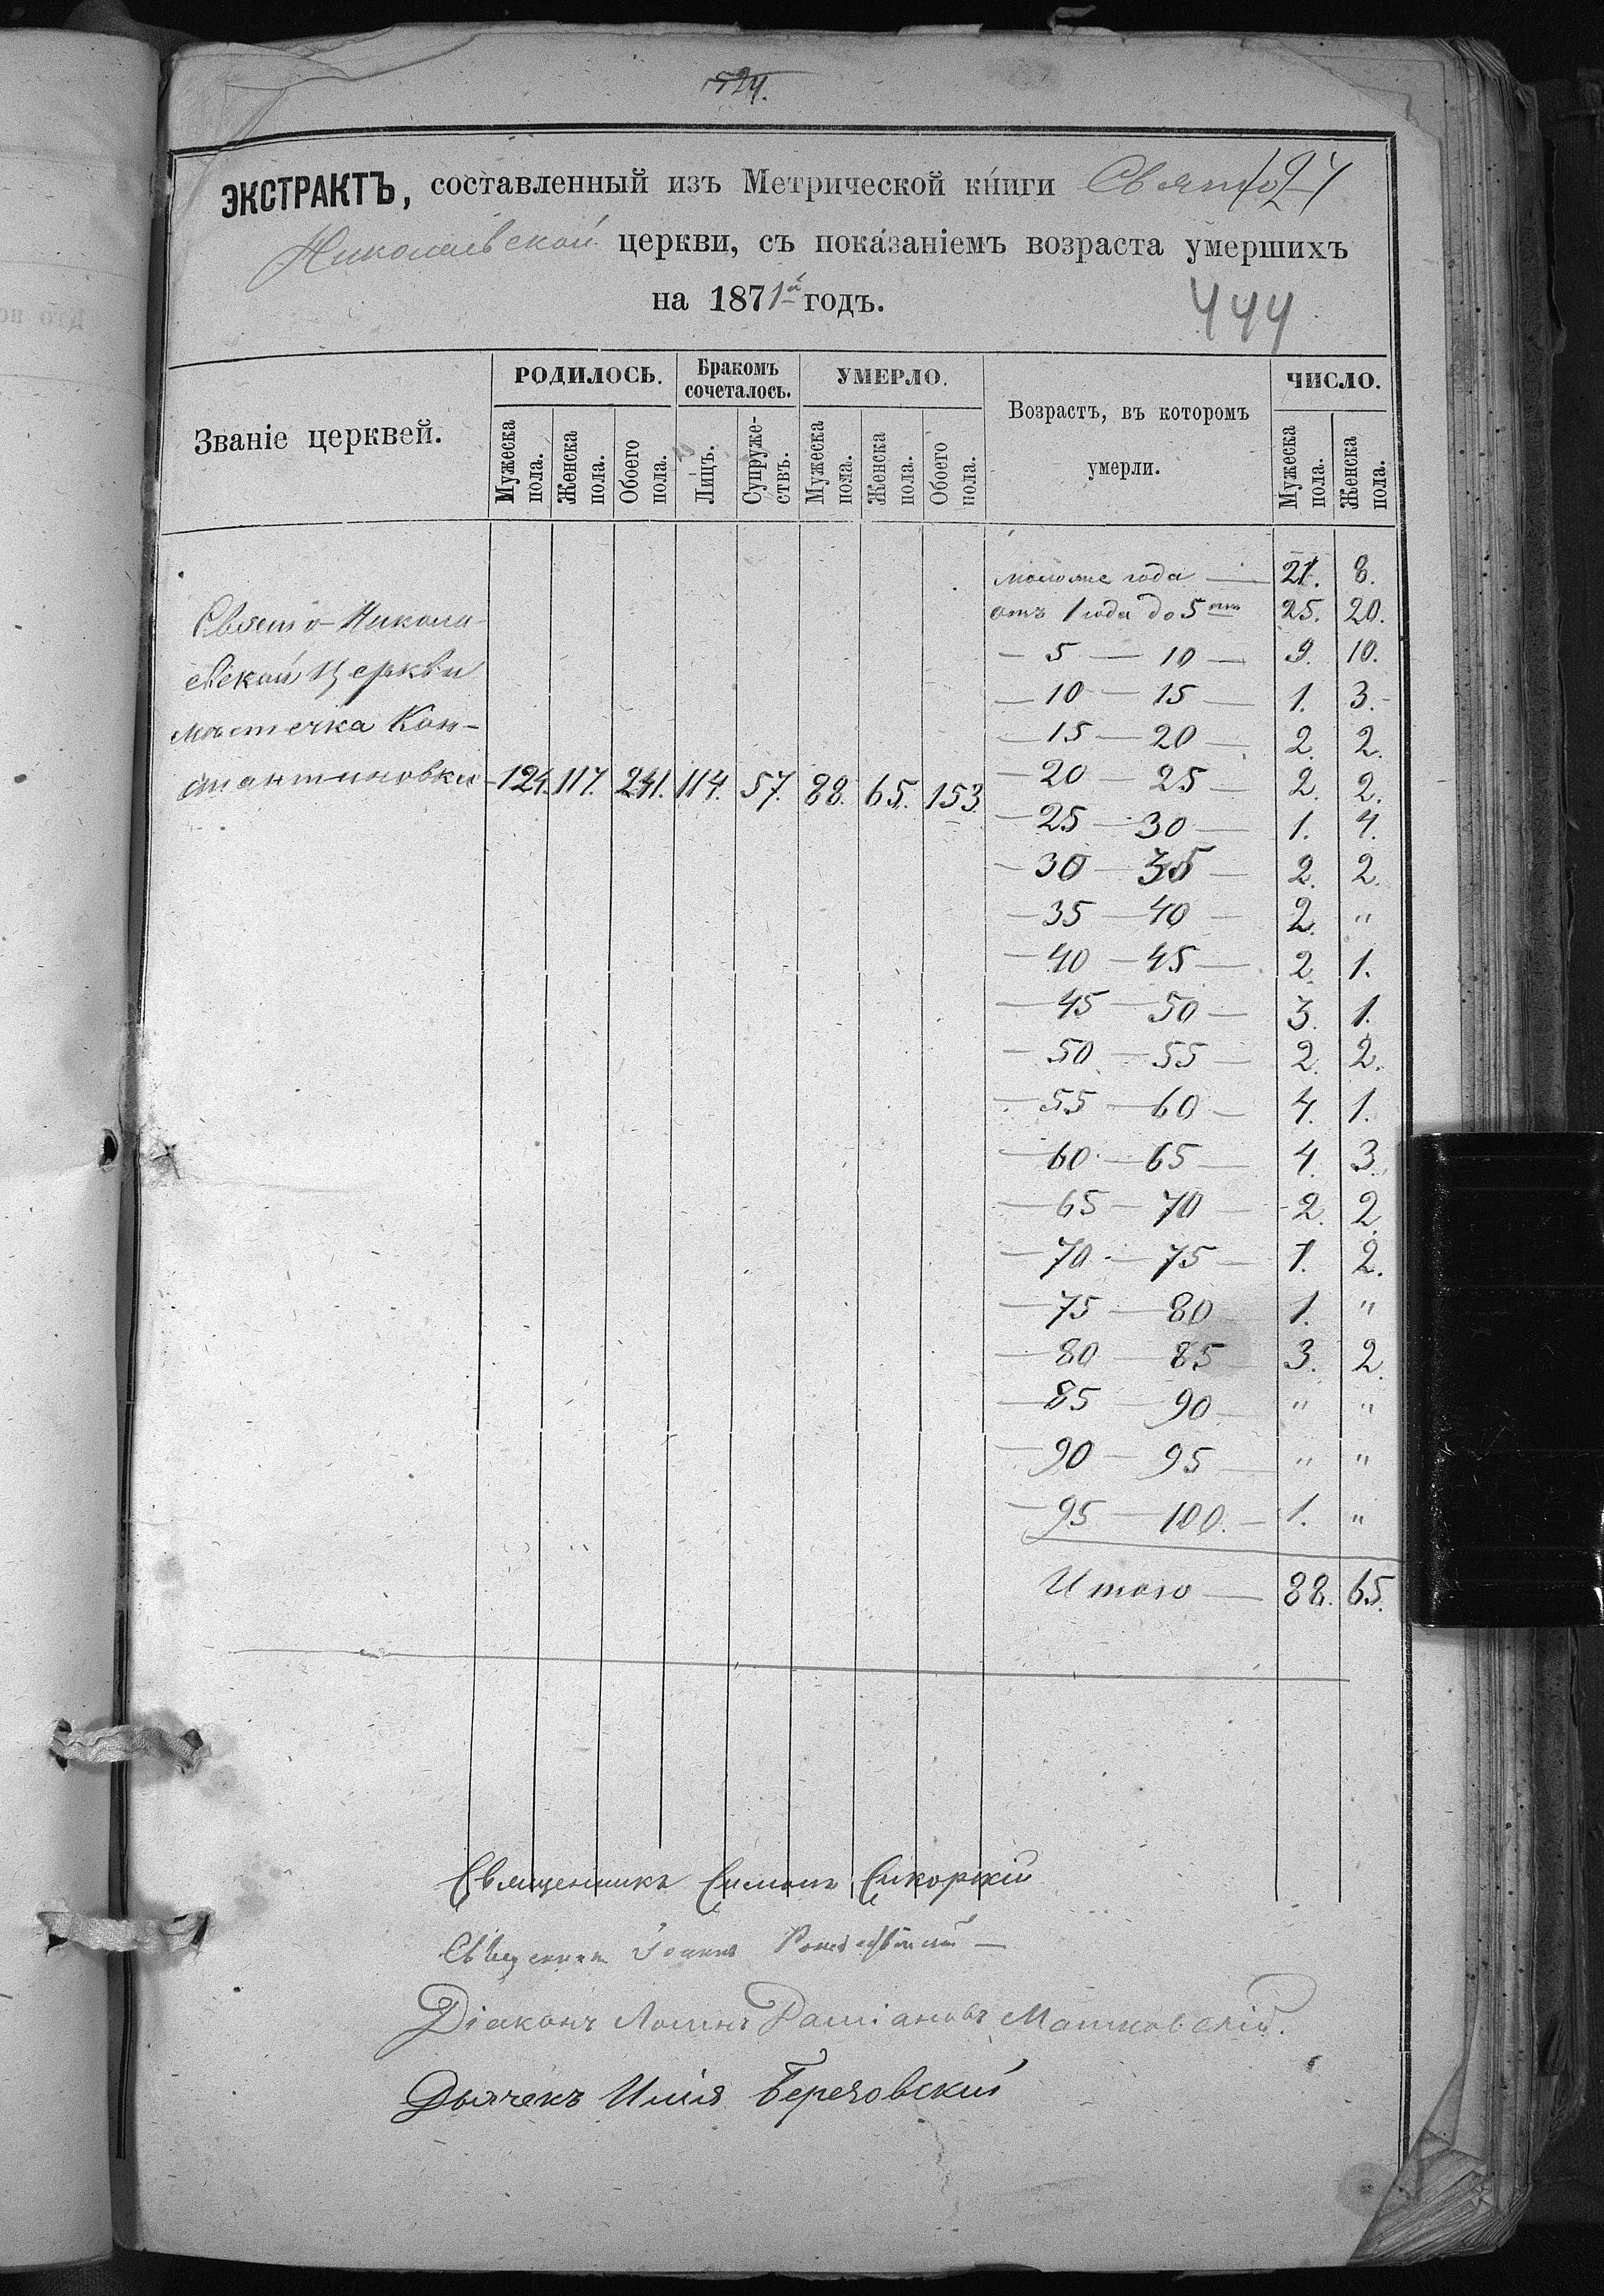 524.
ЭКСТРАКТЪ, составленный изъ Метрической книги Свято
Николаевской церкви, съ показаніемъ возраста умершихъ
на 1871й годъ.
444
Званіе церквей.
РОДИЛОСЬ.
Бракомъ сочеталось.
УМЕРЛО.
Возрастъ, въ которомъ умерли.
ЧИСЛО.
Мужеска пола.
Женска пола.
Обоего пола.
Лицъ.
Супружествъ.
Мужеска пола.
Женска пола.
Обоего пола.
Мужеска пола.
Женска пола.
Свято-Никола-
евской Церкви
мѣстечка Кон-
стантиновки - 124. 117. 241. 114. 57. 88. 65. 153
моложе года — 21. 8.
отъ 1 года до 5 — 25. 20.
— 5 — 10 — 9. 10.
— 10 — 15 — 1. 3.
— 15 — 20 — 2. 2.
— 20 — 25 — 2. 2.
— 25 — 30 — 1. 4.
— 30 — 35 — 2. 2.
— 35 — 40 — 2. "
— 40 — 45 — 2. 1.
— 45 — 50 — 3. 1.
— 50 — 55 — 2. 2.
— 55 — 60 — 4. 1.
— 60 — 65 — 4. 3.
— 65 — 70 — 2. 2.
— 70 — 75 — 1. 2.
— 75 — 80 1. "
— 80 — 85 — 3. 2.
— 85 — 90 — " "
— 90 — 95 — " "
— 95 — 100. — 1. "
Итого — 88. 65.
Священникъ Симонъ Сикорскій
Священникъ Іоаннъ
Діаконъ Даміановъ Матковскій.
Дьячекъ Илія Березовскій